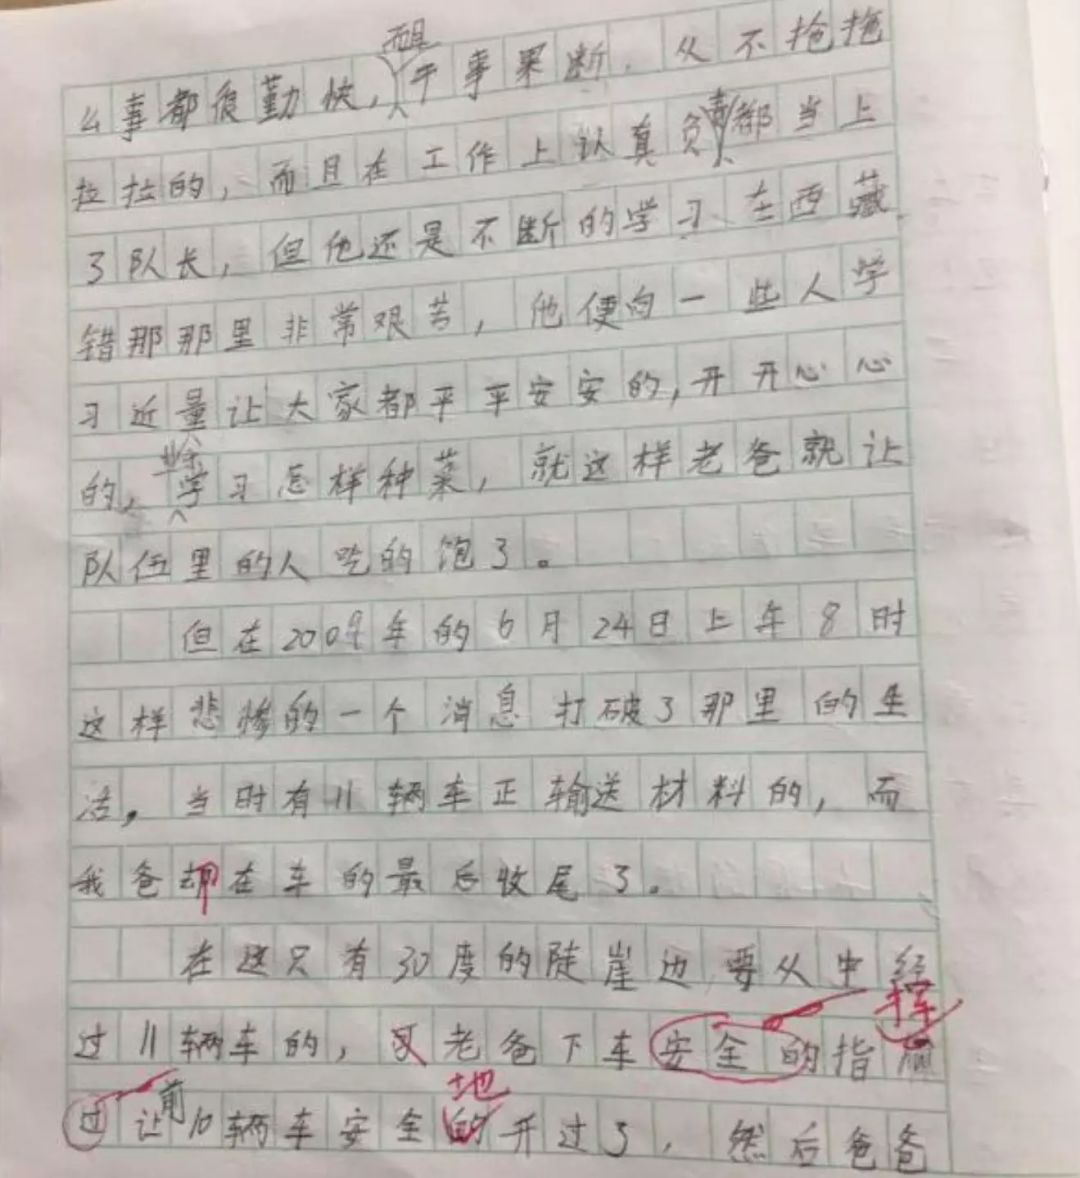 而且
么事都很勤快，干事果断．从不拖拖
拉拉的，而且在工作上认真负责都当上
了队长，但他还是不断的学习．在西藏
错那那里非常艰苦，他便向一些人学
习近量让大家都平平安安的，开开心心
的，业余学习怎样种菜，就这样老爸就让
队伍里的人吃的饱了。
但在2009年的6月24日上午8时
这样悲惨的一个消息打破了那里的生
活。当时有11辆车正输送材料的，而
我爸却在车的最后收尾了。
在这只有30度的陡崖边要从中经
过11辆车的，老爸下车安全的指挥
过让前10辆车安全的地开过了，然后爸爸